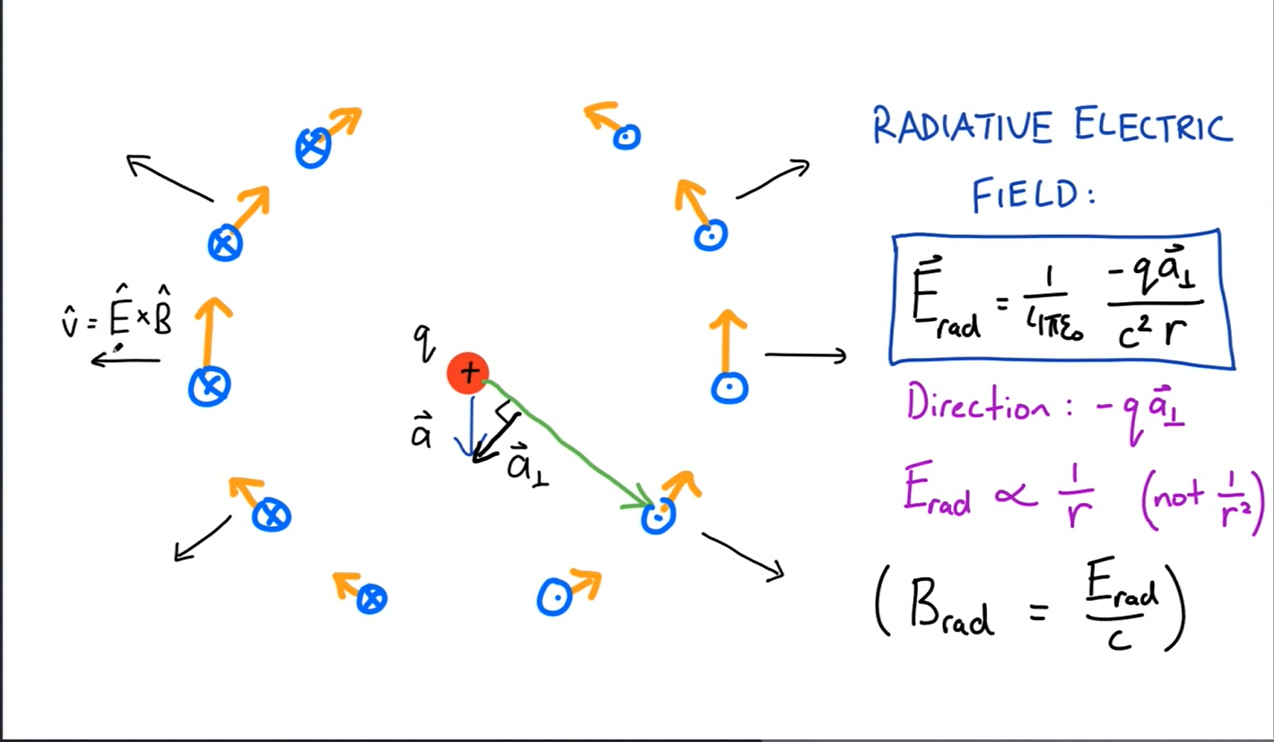 RADIATIVE ELECTRIC
FIELD:
v̂ = Ê × B̂
q
+
a⃗
a⃗⊥
E⃗rad = 1/4πε₀ -qa⃗⊥/c² r
Direction: -qa⃗⊥
Erad ∝ 1/r (not 1/r²)
(Brad = Erad/c)